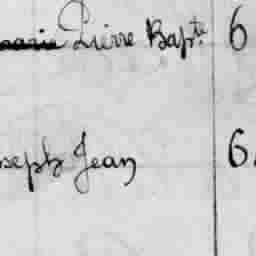 Pierre Bapte 6
seph Jean 6